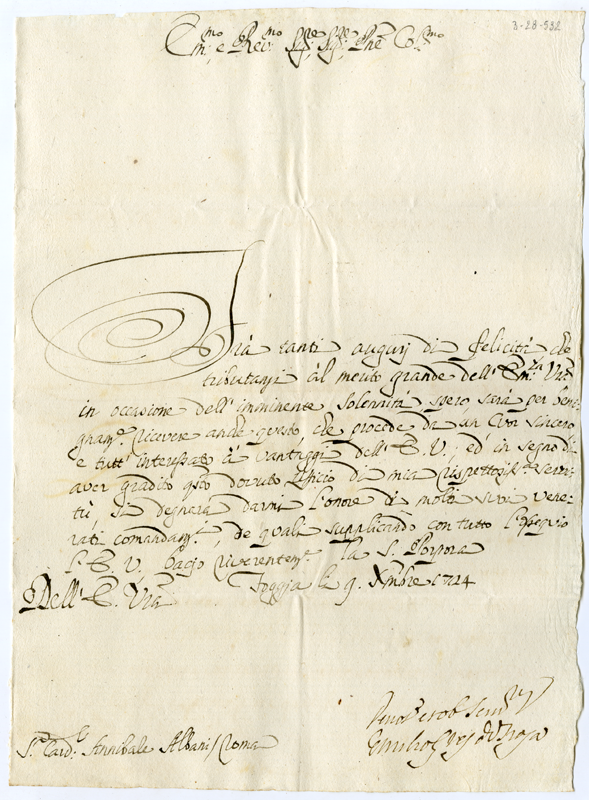 3-28-532
Em.mo, e Rev.mo Sig.re, Sig.re Pne Col.mo
Frà tanti augurj di felicità che
tributansi al merito grande dell' Em.za V.ra
in occasione dell' imminente solennità spero, sarà per beni-
gnam.e ricevere anche questo, che procede da un Cuor sincero
e tutt' interessato à vantaggi dell' E. V.; ed' in segno di
aver gradito q.sto dovuto officio di mia rispettosis.a servi-
tù, si degnerà darmi l'onore di molti suoi vene-
rati comandam.ti, de quali supplicando con tutto l'ossequio
l' E. V. bacio riverentem.e la S. Porpora
Foggia li 9. Xmbre 1724
Dell' E. V.ra
S.r Card.l Annibale Albani / Roma